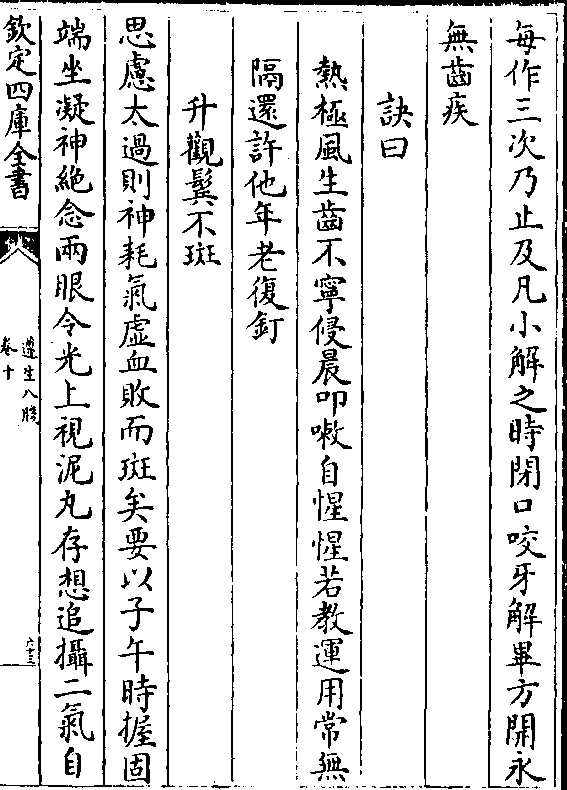 每作三次乃止及凡小解之時閉口咬牙解畢方開永
無齒疾
訣曰
熱極風生齒不寧侵晨叩嗽自惺惺若教運用常無
隔還許他年老復釘
升觀鬂不斑
思慮太過則神耗氣虛血敗而斑矣要以子午時握固
端坐凝神絶念兩眼令光上視泥丸存想追攝二氣自
欽定四庫全書
遵生八牋
卷十
六十三